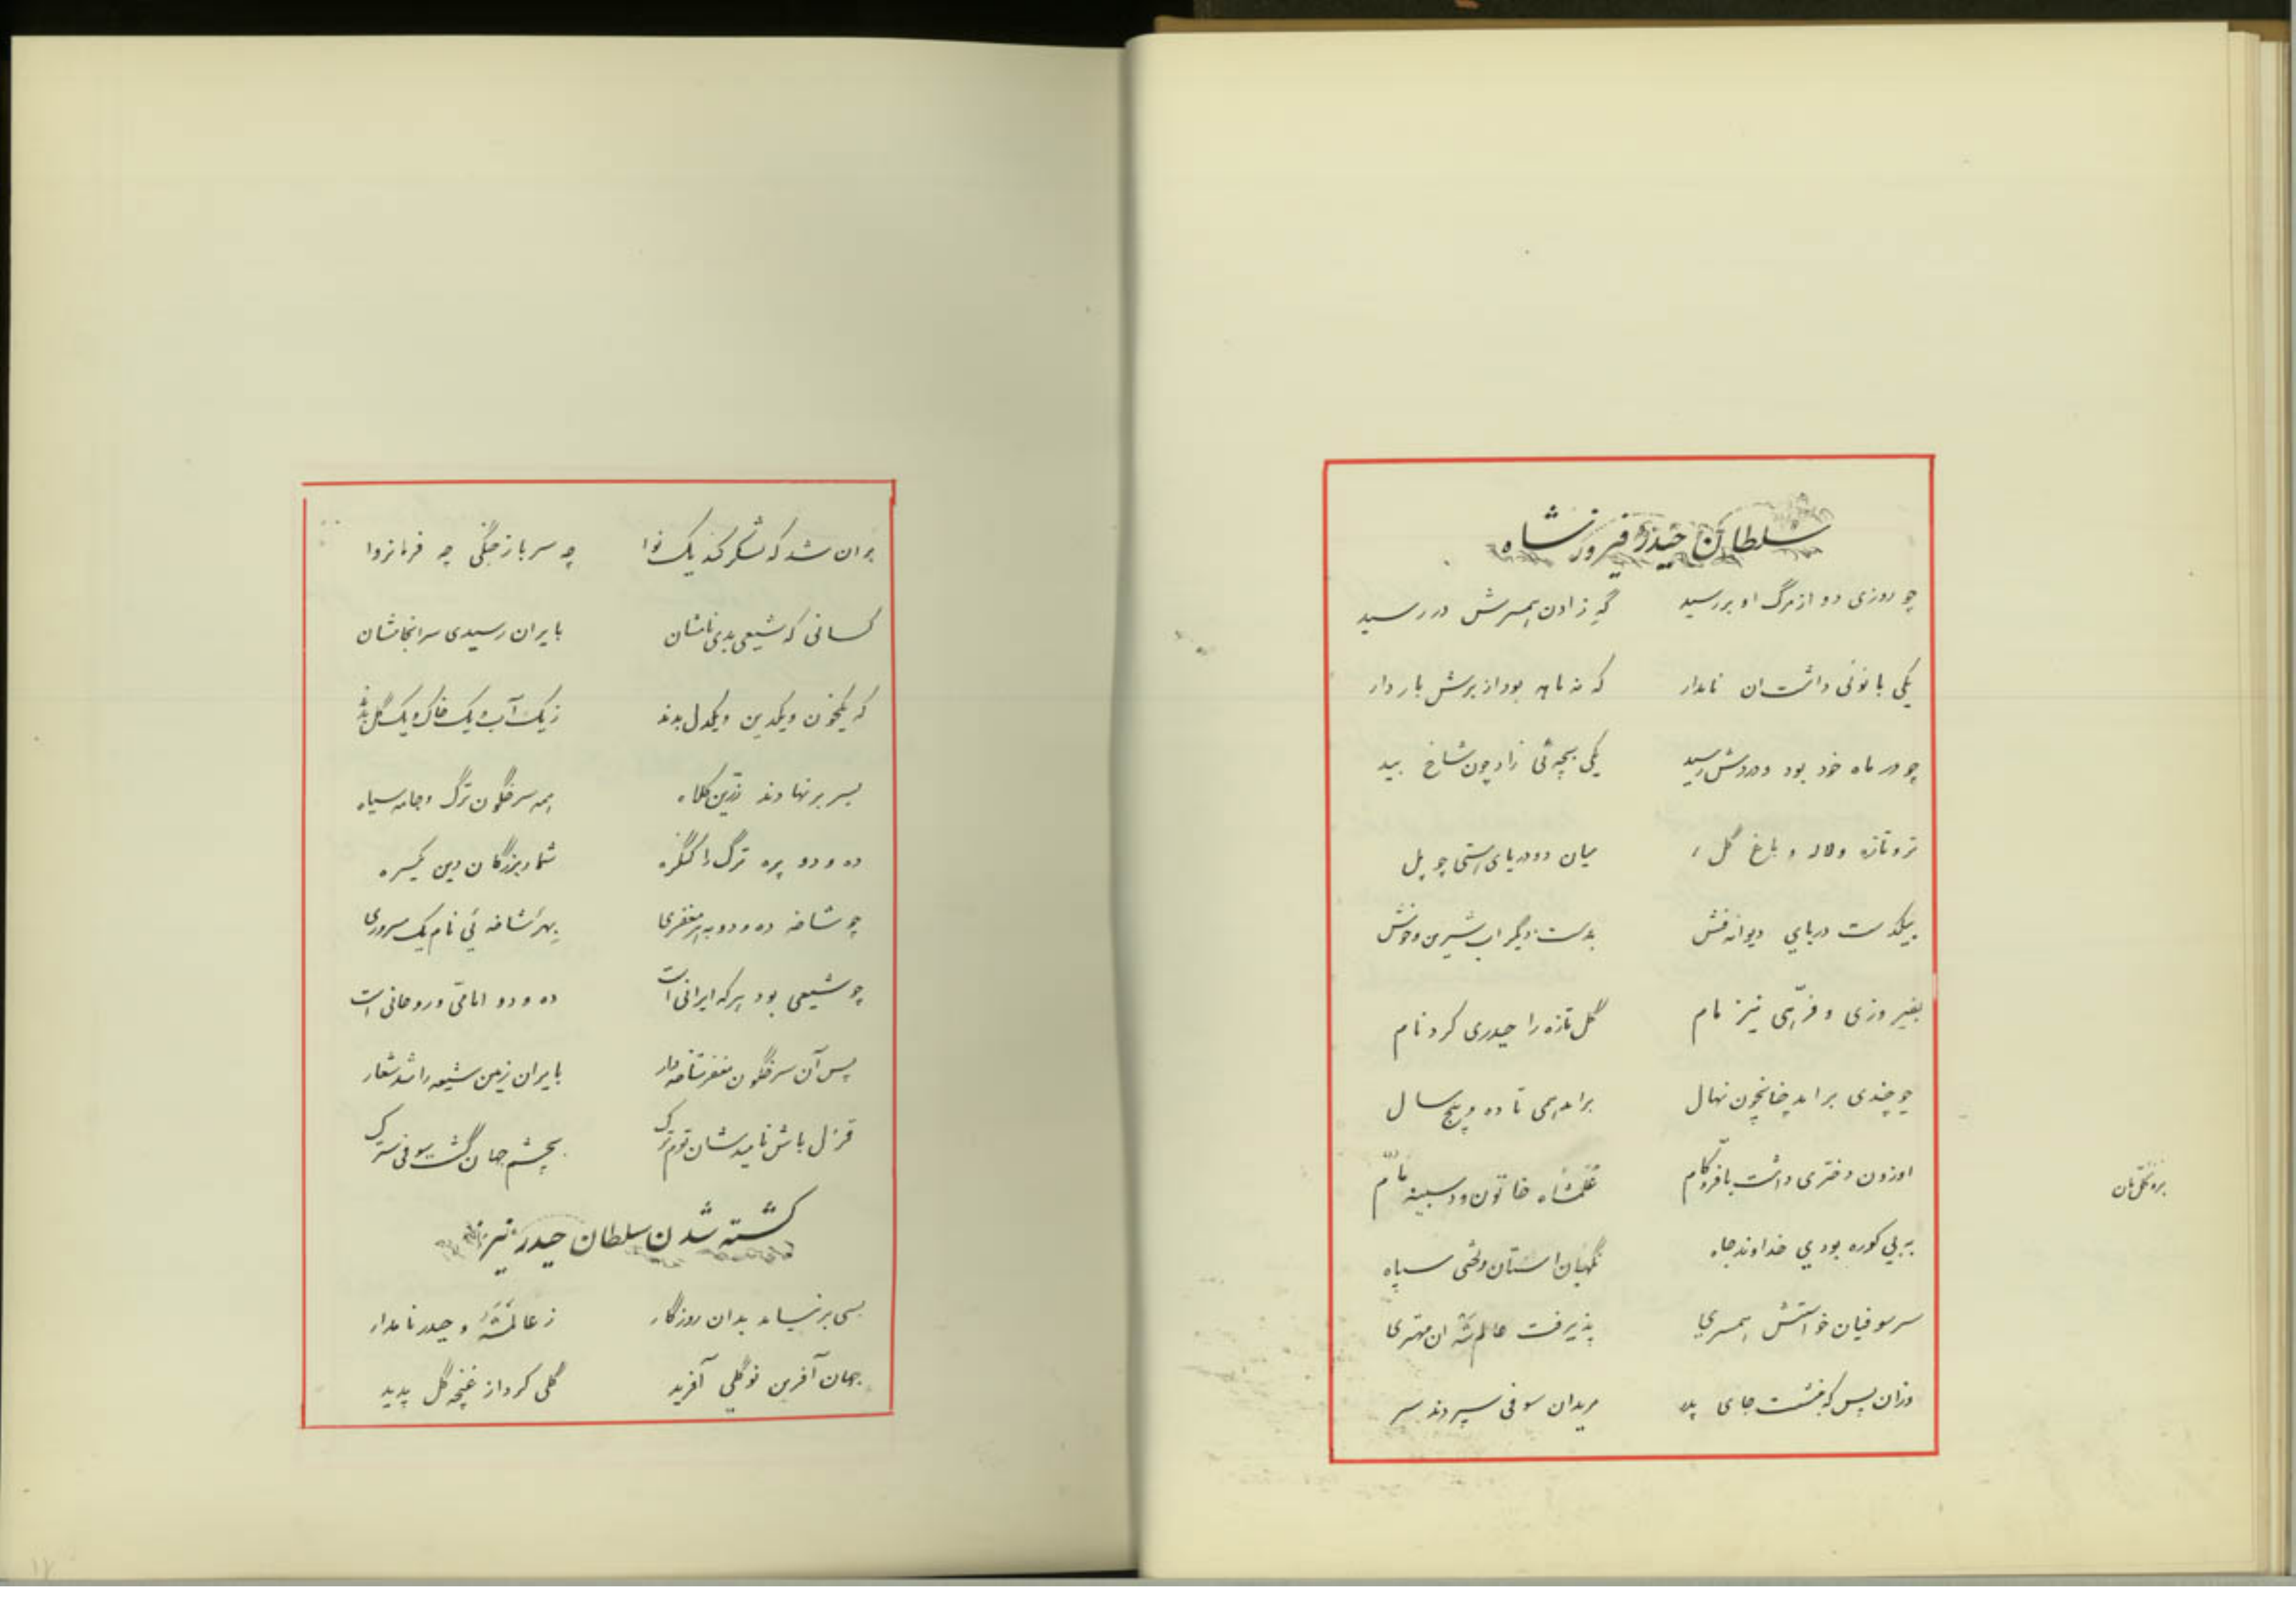 سلطان حیدر فیروزشاه
چو روزی دو از مرگ او بر رسید گه زادن همسرش در رسید
یکی بانوئی داشت ان نامدار که نه ماه بود از برش باردار
چو در ماه خود بود و دردش رسید یکی بچه‌ئی زاد چون شاخ بید
تر و تازه و لاله و باغ گل میان دو دریای هستی چو پل
بیکدست دریای دیوانه فش بدست دیگر اب شیرین و خوش
بفیروزی و فرّهی نیز نام گل تازه را حیدری کرد نام
چو چندی برامد چنانچون نهال برامد همی تا ده و پنج سال
اوزون دختری داشت با فر و کام علمشاه خاتون ود سپینه مام
به بی کوره بودی خداوند جاه نگهبان استان ولختی سپاه
سر سوفیان خواستش همسری پذیرفت عالمشه ان مهتری
وزان پس که بنشست جای پدر مریدان سوفی سپردند سر
بران شد که لشکر کند یک نوا چه سرباز جنگی چه فرمانروا
کسانی که شیعی بدی نامشان بایران رسیدی سرانجامشان
که یکخون و یکدین و یکدل بدند ز یک آب و یک خاک و یک گل بدند
بسر بر نهادند زرین کلاه همه سرخگون ترگ و جامه سیاه
ده و دو پره ترگ را کنگره شمار بزرگان دین یکسره
چو شاخه ده و دو به هر مغفری بهر شاخه ئی نام یک سروری
چو شیعی بود هر که ایرانی است ده و دو امامی و روحانی است
پس آن سرخگون مغفر شاخه دار بایران زمین شیعه را شد شعار
قزل باش نامیدشان قوم ترک بچشم جهان گشت سوفی سترک
کشته شدن سلطان حیدر نیز
بسی بر نیامد بدان روزگار ز عالمشه و حیدر نامدار
جهان آفرین نوگلی آفرید گلی کرد از غنچه گل پدید